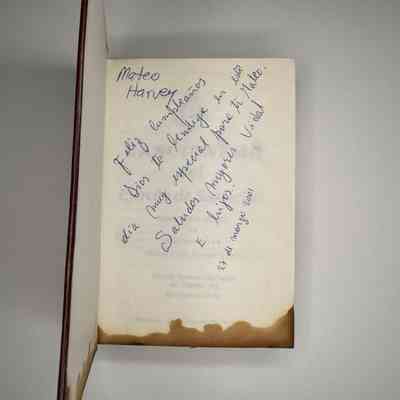 Mateo
Harvey
Feliz cumpleaños
Dios te bendiga en este
día muy especial para ti Mateo.
Saludos mayores Vidal
E hijos.
27 de marzo 2001